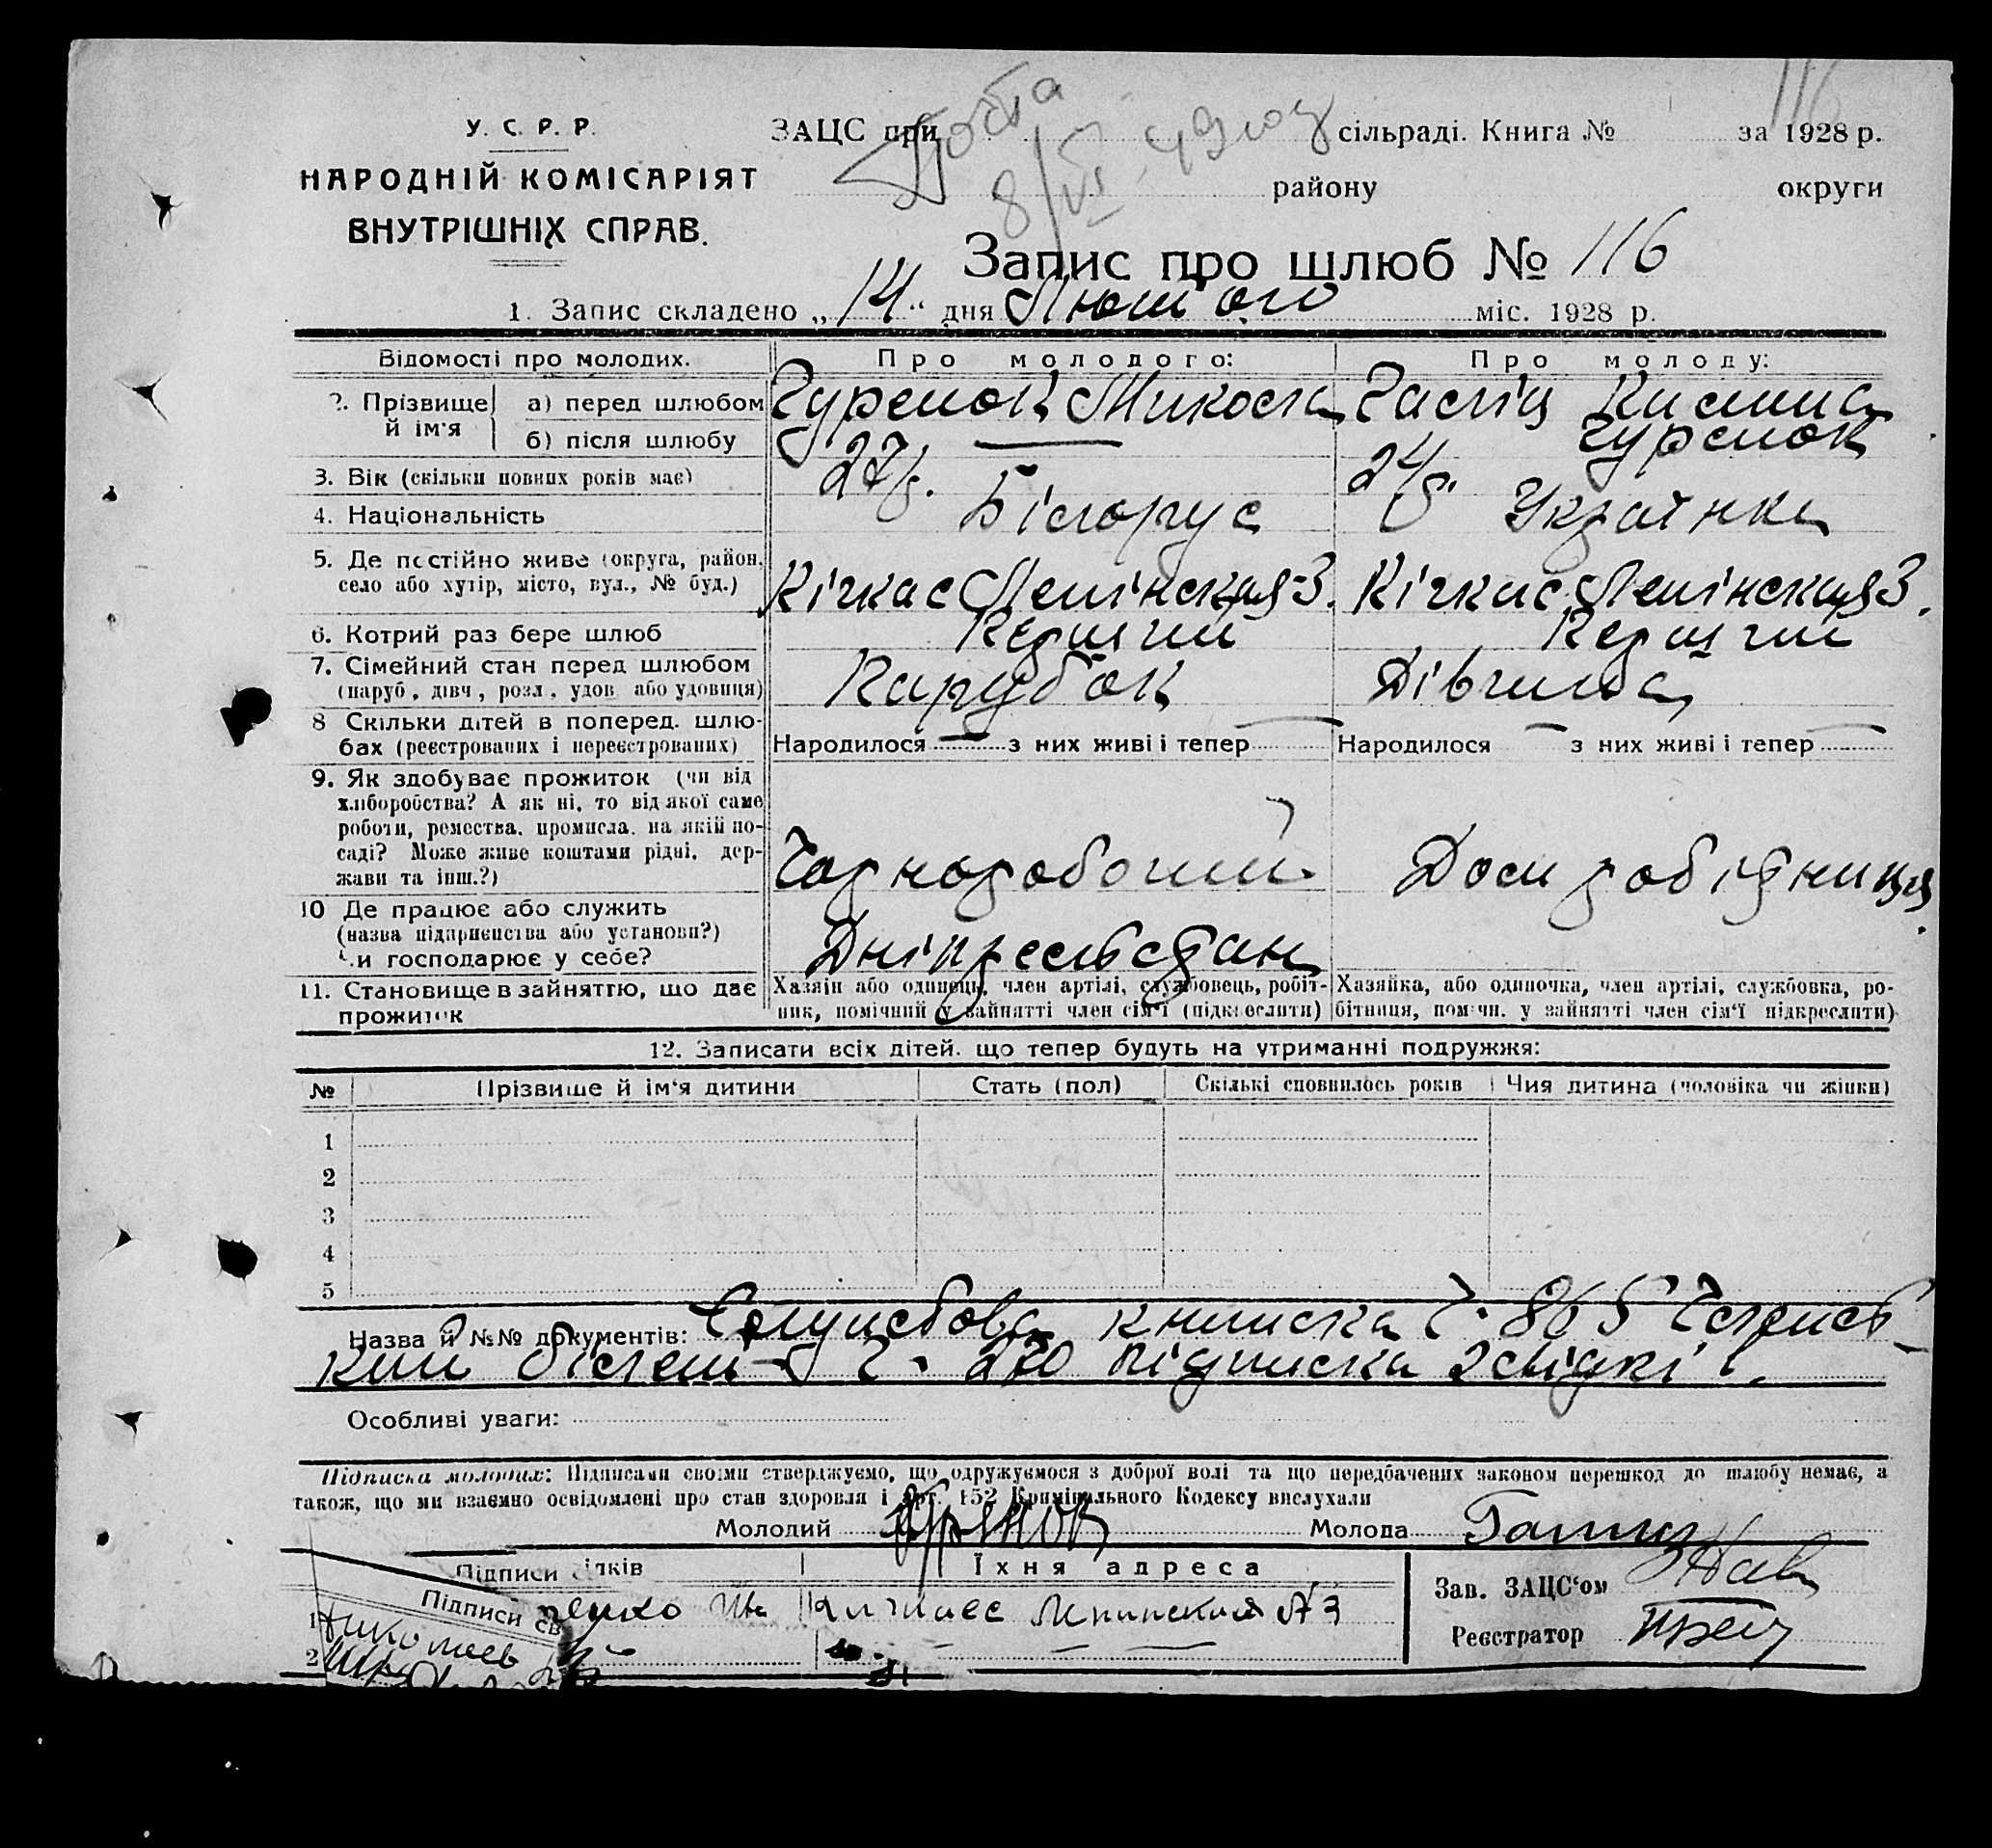 116
У. С. Р. Р.
НАРОДНІЙ КОМІСАРІЯТ
ВНУТРІШНІХ СПРАВ.
ЗАЦС при сільраді. Книга № за 1928 р.
району округи
Запис про шлюб № 116
1. Запис складено „ 14 “ дня Лютого міс. 1928 р.
Відомості про молодих. Про молодого: Про молоду:
2. Прізвище й ім'я
а) перед шлюбом Гуренок Микола
б) після шлюбу — Гуренок
3. Вік (скільки повних років має) 27 24
4. Національність Білорус Українка
5. Де постійно живе (округа, район, село або хутір, місто, вул., № буд.) Кічкас Ленінская 3. Кічкас Ленінская 3.
6. Котрий раз бере шлюб Перший Перший
7. Сімейний стан перед шлюбом (паруб., дівч., розл., удов. або удовиця) Парубок Дівчина
8 Скільки дітей в поперед. шлюбах (реєстрованих і нереєстрованих) Народилося — з них живі і тепер — Народилося — з них живі і тепер —
9. Як здобуває прожиток (чи від
хліборобства? А як ні, то від якої саме
роботи, ремества, промисла, на якій по-
саді? Може живе коштами рідні, дер-
жави та інш.?)
Чорноробочий Дом робітниця
10 Де працює або служить
(назва підприємства або установи?)
Чи господарює у себе?
11. Становище в зайняттю, що дає
прожиток
Хазяїн або одинець, член артілі, службовець, робіт-
ник, помічний у зайнятті член сім'ї (підкреслити)
Хазяйка, або одиночка, член артілі, службовка, ро-
бітниця, помічн. у зайнятті член сім'ї підкреслити)
12. Записати всіх дітей, що тепер будуть на утриманні подружжя:
№ Прізвище й ім'я дитини Стать (пол) Скількі сповнилось років Чия дитина (чоловіка чи жінки)
1
2
3
4
5
Назва й №№ документів: книжка Ч. 865
білет Ч. 270 підписка свідків.
Особливі уваги:
Підписка молодих: Підписами своїми стверджуємо, що одружуємося з доброї волі та що передбачених законом перешкод до шлюбу немає, а
також, що ми взаємно освідомлені про стан здоровля і арт. 152 Кримінального Кодексу вислухали
Молодий Гуренок Молода
Підписи Їхня адреса
Підписи св
1 Кичкас Ленинская № 3
2
Зав. ЗАЦС'ом
Реєстратор